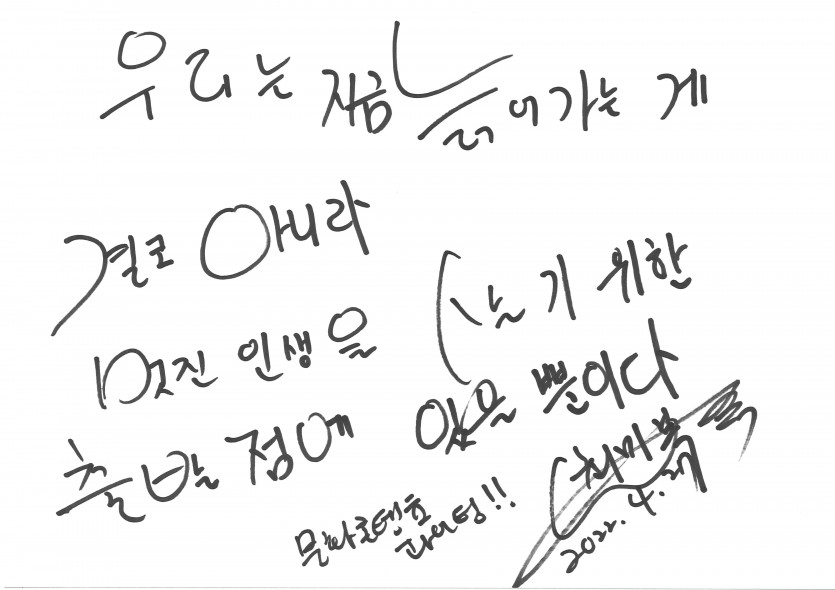 우리는 지금 늙어가는 게
결코 아니라
멋진 인생을 사는기 위한
출발점에 있을 뿐이다
문화로탠효
파이팅!!
최미복
2022. 4. 27